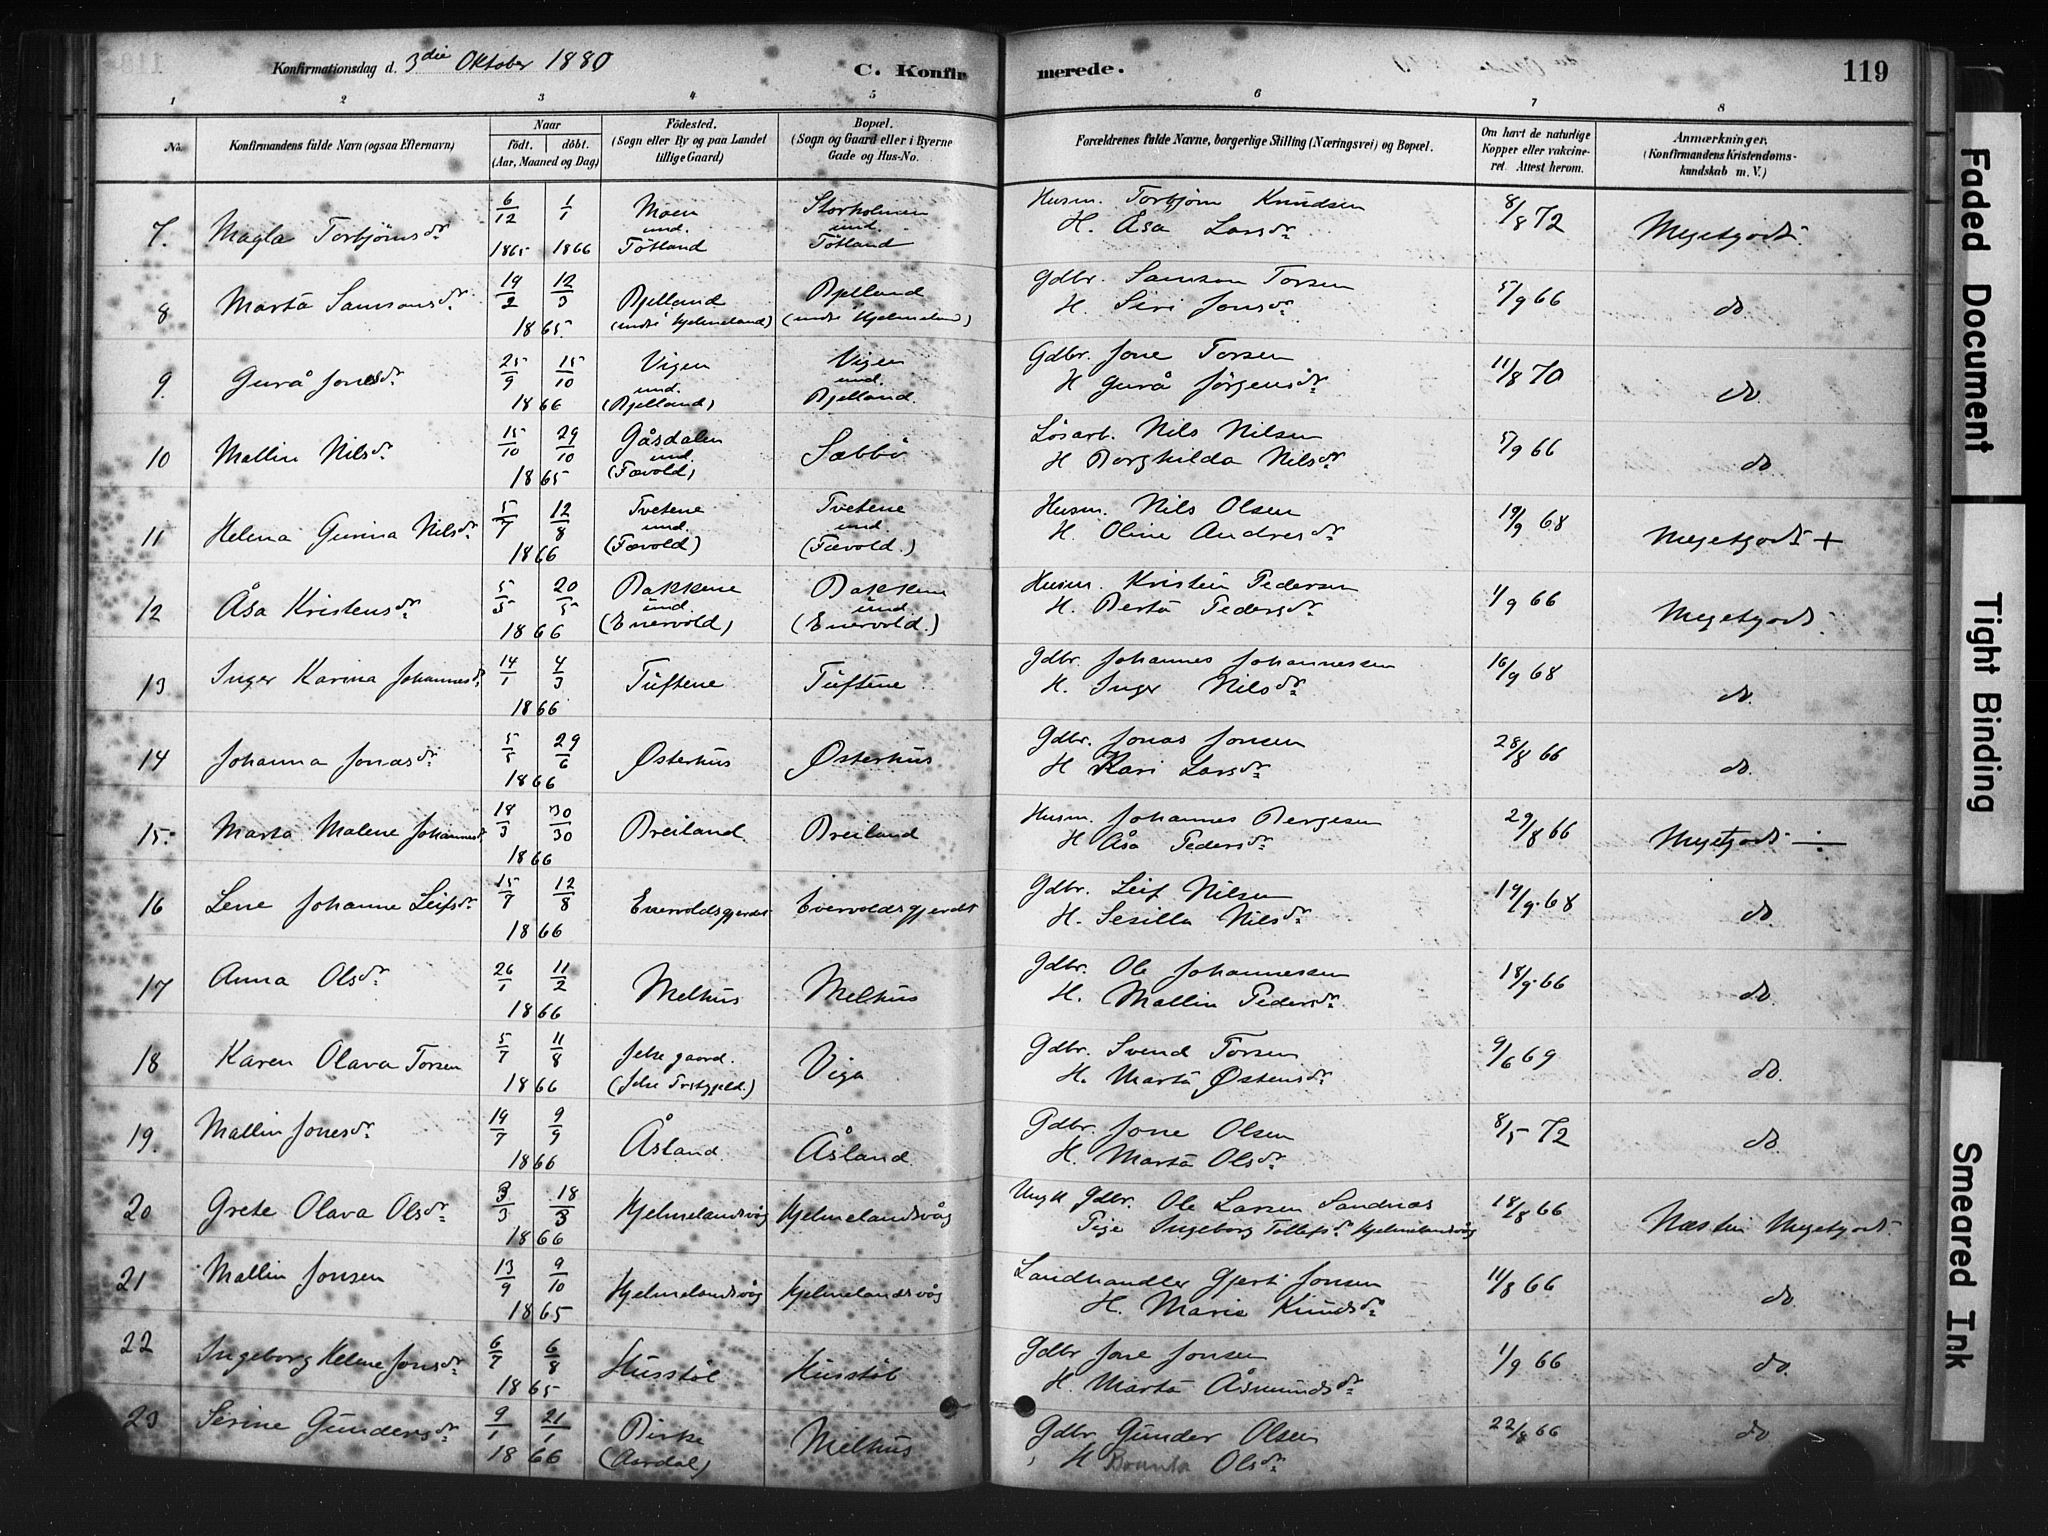 Konfirmationsdag d. 3die Oktober 1880 C. Konfirmerede. 119
1 2 3 4 5 6 7 8
No. Konfirmandens fulde Navn (ogsaa Efternavn) Naar født. døbt. (Aar, Maaned og Dag) Fødested. (Sogn eller By og paa Landet tillige Gaard) Bopæl. (Sogn og Gaard eller i Byerne Gade og Hus-No. Forældrenes fulde Navne, borgerlige Stilling (Næringsvei) og Bopæl. Om havt de naturlige Kopper eller vakcineret. Attest herom. Anmærkninger. (Konfirmandens Kristendomskundskab m. V.)
7. Magla Torbjørnsdr. 6/12 1865 1/1 1866 Moen und. Tøtland Storholmen und. Tøtland Husm. Torbjørn Knudsen 8/8 72 Megetgodt.
H. Åsa Larsdr.
8 Marta Samsonsdr. 19/2 12/3 1865 Bjelland (indre Hjelmeland) Bjelland (indre Hjelmeland) Gdbr. Samson Torsen 5/9 66 do
H. Siri Jonsdr.
9. Gurå Jonesdr. 25/9 15/10 1866 Vigen und. (Bjelland) Vigen und. Bjelland. Gdbr. Jone Torsen 11/8 70 do.
H Gurå Jørgensdr.
10 Mallin Nilsdr. 15/10 29/10 1865 Gåsdalen und. (Fævold) Sæbbø Løsarb. Nils Nilsen 5/9 66 do
H Borghilda Nilsdr.
11 Helena Gurina Nilsdr. 5/7 12/8 1866 Tvetene und. (Fævold) Tvetene und. (Fævold.) Husm. Nils Olsen 19/9 68 Megetgodt +
H. Oline Andresdr.
12 Åsa Kristensdr. 5/5 20/5 1866 Bakkene und. (Enervold) Bakken und (Enervold.) Husm. Kristen Pedersen 1/9 66 Megetgodt.
H. Berta Pedersdr.
13 Inger Karina Johannesdr. 14/1 4/3 1866 Tuftene Tuftene Gdbr. Johannes Johannessen 16/9 68 do.
H. Inger Nilsdr.
14 Johanna Jonasdr. 5/5 29/6 1866 Østerhus Østerhus Gdbr. Jonas Jonsen 28/8 66 do.
H Kari Larsdr.
15. Marta Malene Johannesdr. 18/3 30/30 1866 Breiland Breiland Husm. Johannes Bergesen 29/8 66 Megetgodt ÷
H Åsa Pedersdr.
16 Lene Johanne Leifsdr. 15/7 12/8 1866 Enervoldsgjerdet Enervoldsgjerdet Gdbr. Leif Nilsen 19/9. 68 do
H. Sesilla Nilsdr.
17 Anna Olsdr. 26/1 11/2 1866 Melhus Melhus Gdbr. Ole Johannessen 18/9. 66 do.
H. Mallin Pedersdr.
18 Karen Olava Torsen 5/7 11/8 1866 Jelse gaard. (Jelse Prstgjeld.) Viga Gdbr. Svend Torsen 9/6 69 do.
H. Marta Østensdr.
19. Mallin Jonesdr. 19/7 9/9 1866 Åsland. Åsland. Gdbr. Jone Olsen 8/5 72 do.
H. Marta Olsdr.
20 Grete Olava Olsdr. 3/3 18/3 1866 Hjelmelandsvåg Hjelmelandsvåg Ungk Gdbr. Ole Larsen Sandnæs 18/8 66 Næsten Megetgodt.
Pige Ingeborg Tollefsdr. Hjelmelandsvåg
21 Mallin Jonsen 13/9 9/10 1865 Hjelmelandsvåg Hjelmelandsvåg Landhandler Gjert Jonsen 11/8 66 do.
H. Marie Knudsdr.
22 Ingeborg Helene Jonsdr. 6/7 6/8 1865 Husstøl Husstøl Gdbr Jone Jonsen 1/9 66 do.
H. Marta Åsmundsdr.
23 Serine Gundersdr. 9/1 21/1 1866 Birke (Aardal) Melhus Gdbr Gunder Olsen 22/9 66 do
H Olsdr.
Faded Document
Tight Binding
Smeared Ink